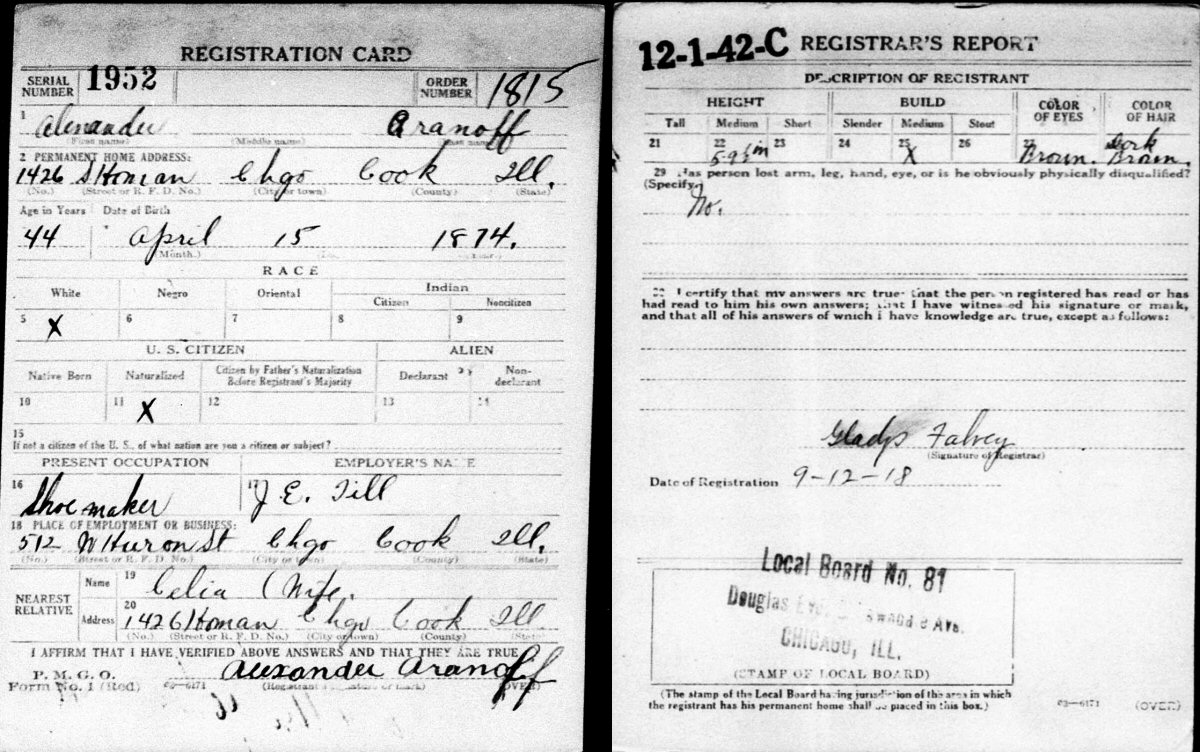 REGISTRATION CARD
SERIAL NUMBER 1952 ORDER NUMBER 1815
1 Alexander Aranoff
(First name) (Middle name) (Last name)
2 PERMANENT HOME ADDRESS:
1426 S Homan Chgo Cook Ill.
(No.) (Street or R. F. D. No.) (City or town) (County) (State)
Age in Years Date of Birth
44 April 15 1874.
(Month.) (Year.)
RACE
White Negro Oriental Indian
Citizen Noncitizen
5 X 6 7 8 9
U. S. CITIZEN ALIEN
Native Born Naturalized Citizen by Father's Naturalization Before Registrant's Majority Declarant Non-declarant
10 11 X 12 13 14
15
If not a citizen of the U. S., of what nation are you a citizen or subject?
PRESENT OCCUPATION EMPLOYER'S NAME
16 Shoemaker 17 J. E. Till
18 PLACE OF EMPLOYMENT OR BUSINESS:
512 W Huron St Chgo Cook Ill.
(No.) (Street or R. F. D. No.) (City or town) (County) (State)
NEAREST RELATIVE Name 19 Celia (Wife.
Address 20 1426 Homan Chgo Cook Ill
(No.) (Street or R. F. D. No.) (City or town) (County) (State)
I AFFIRM THAT I HAVE VERIFIED ABOVE ANSWERS AND THAT THEY ARE TRUE
P. M. G. O. Alexander Aranoff
Form No. 1 (Red) 03—6171 (Registrant's signature or mark) (OVER)
12-1-42-C REGISTRAR'S REPORT
DESCRIPTION OF REGISTRANT
HEIGHT BUILD COLOR OF EYES COLOR OF HAIR
Tall Medium Short Slender Medium Stout
21 22 23 24 25 X 26 27 Brown. Dark Brown.
29 Has person lost arm, leg, hand, eye, or is he obviously physically disqualified?
(Specify.)
No.
30 I certify that my answers are true; that the person registered has read or has
had read to him his own answers; that I have witnessed his signature or mark,
and that all of his answers of which I have knowledge are true, except as follows:
Gladys Falvey
(Signature of Registrar)
Date of Registration 9-12-18
Local Board No. 81
Douglas Ave.
CHICAGO, ILL.
(STAMP OF LOCAL BOARD)
(The stamp of the Local Board having jurisdiction of the area in which
the registrant has his permanent home shall be placed in this box.)
03—6171 (OVER)